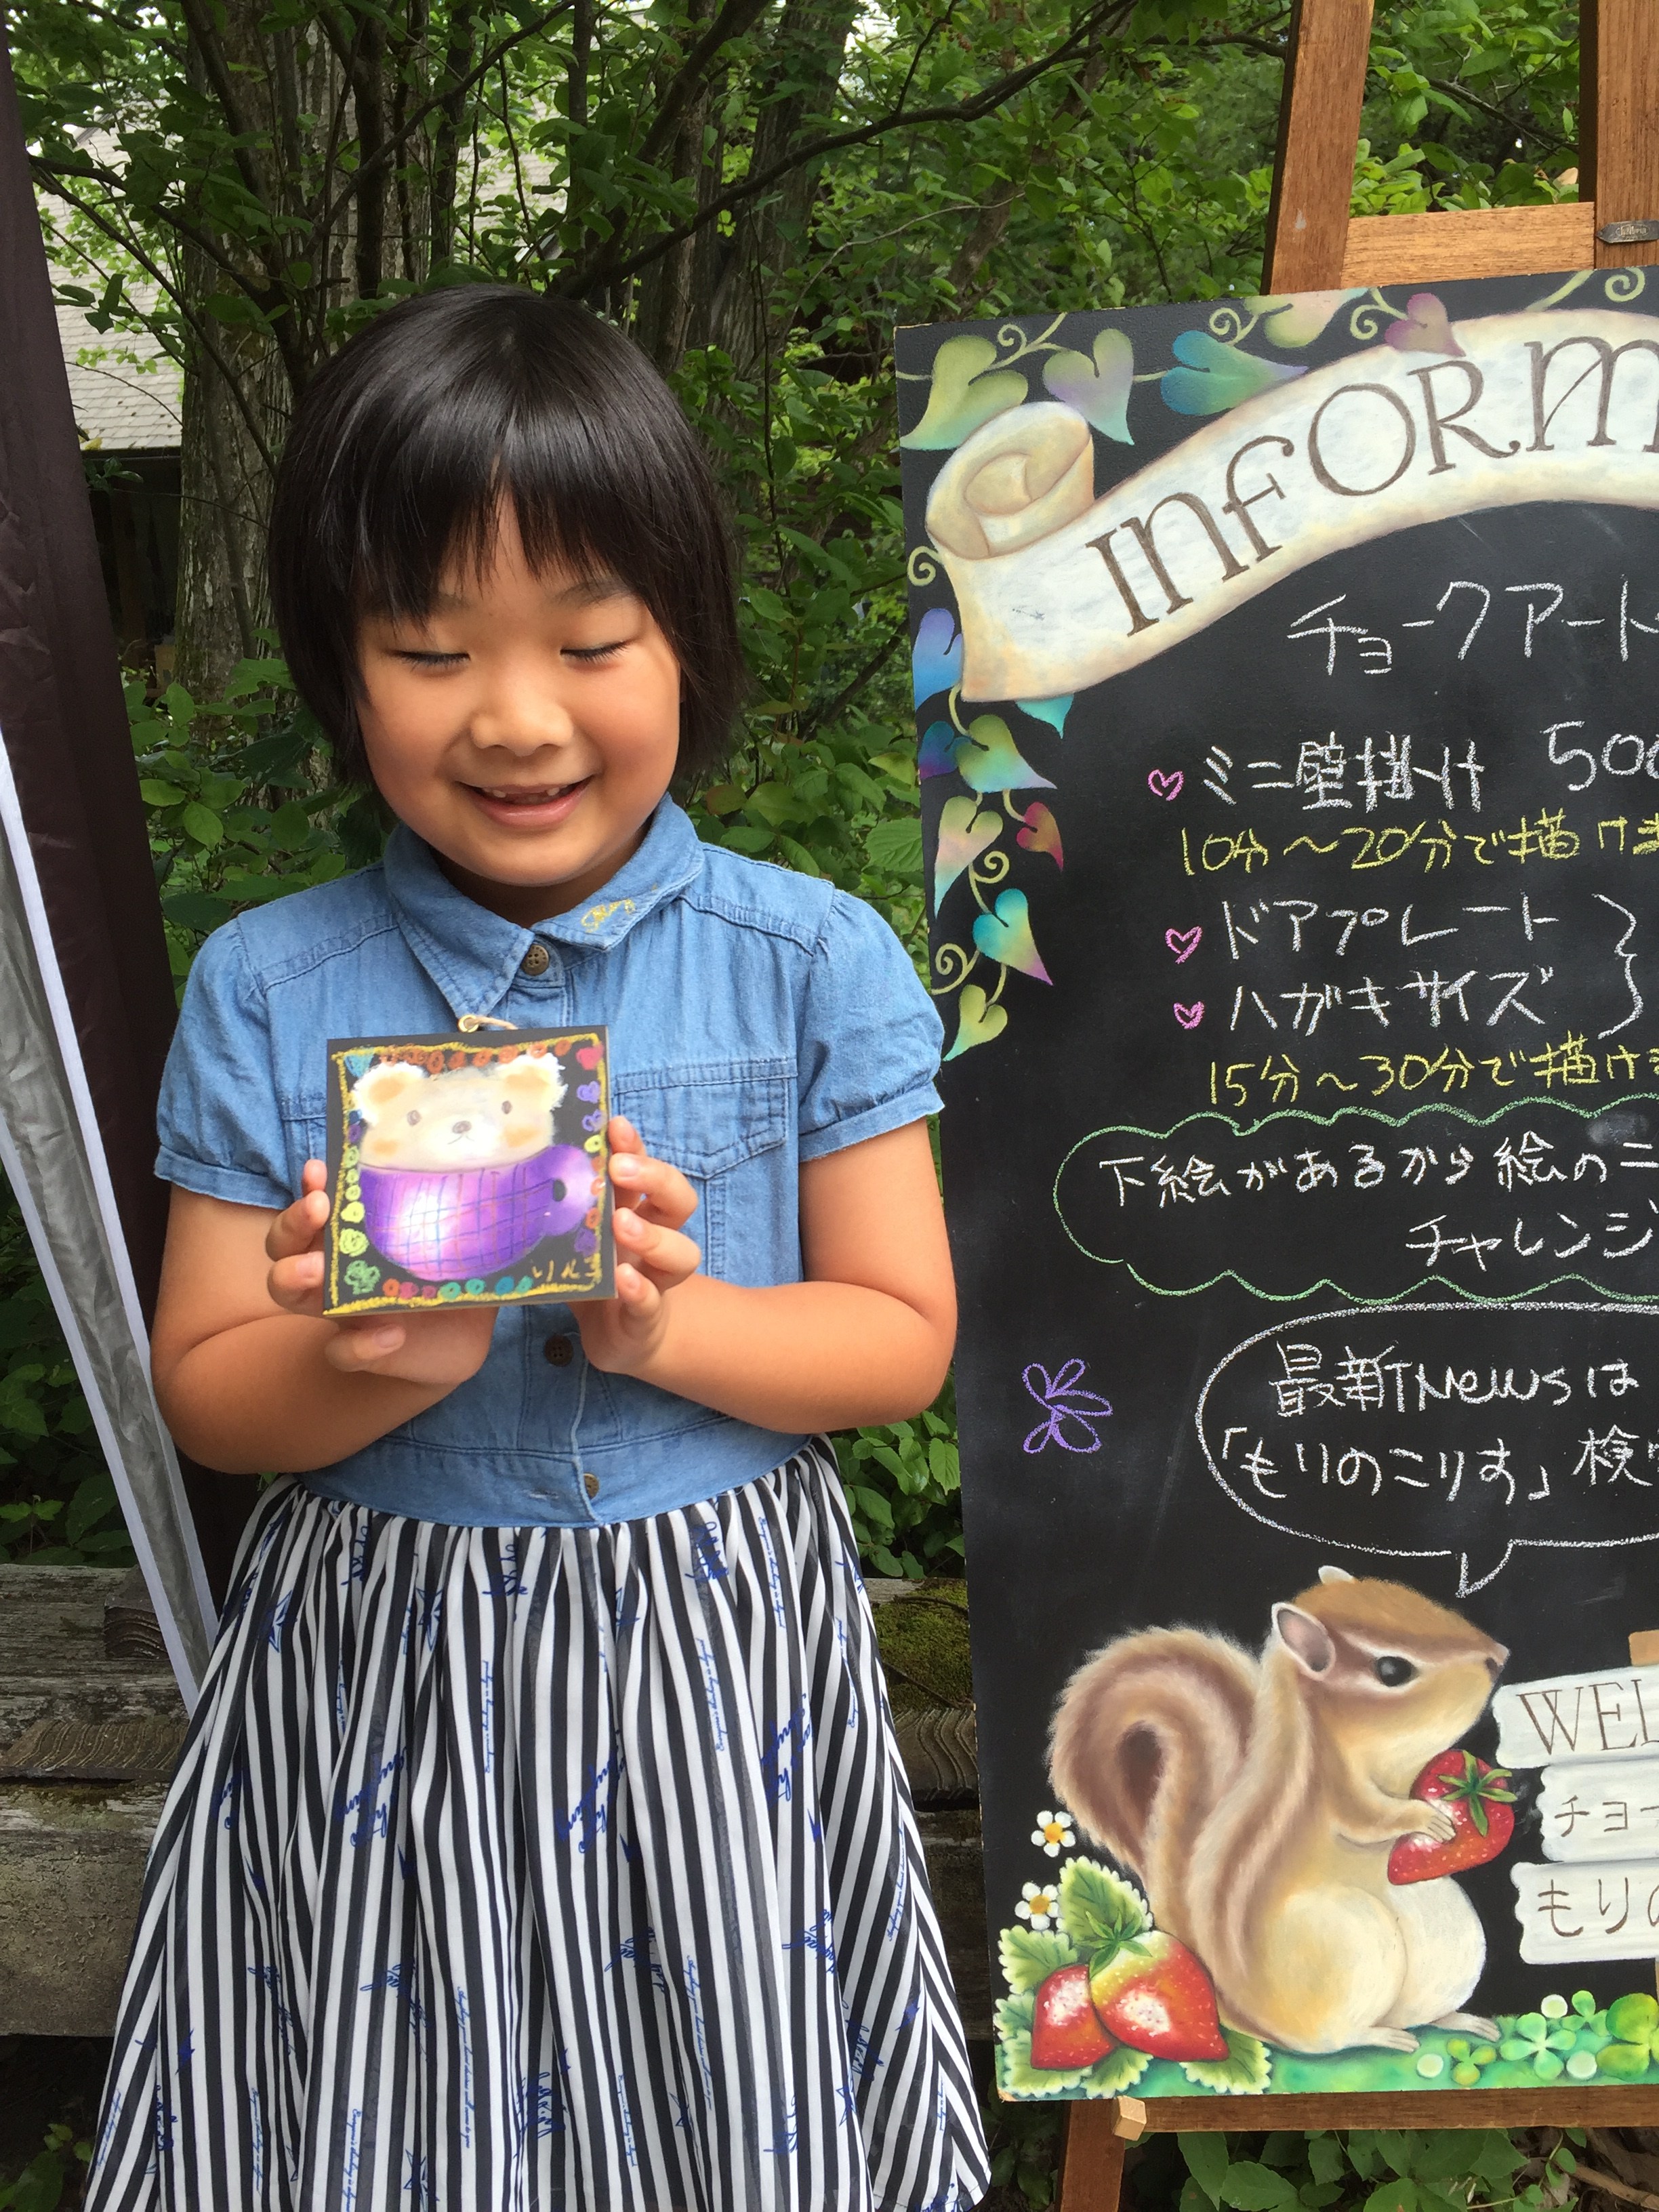 INFORM
チョークアート
ミニ壁掛け 500
10分～20分で描けま
ドアプレート
ハガキサイズ
15分～30分で描けま
下絵があるから絵のニ
チャレンジ
最新Newsは
「もりのこりす」検
WEL
チョー
もりの